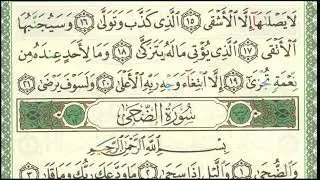 لَا يَصْلَىٰهَآ إِلَّا ٱلْأَشْقَى ١٥ ٱلَّذِى كَذَّبَ وَتَوَلَّىٰ ١٦ وَسَيُجَنَّبُهَا
ٱلْأَتْقَى ١٧ ٱلَّذِى يُؤْتِى مَالَهُۥ يَتَزَكَّىٰ ١٨ وَمَا لِأَحَدٍ عِندَهُۥ مِن
نِّعْمَةٍ تُجْزَىٰٓ ١٩ إِلَّا ٱبْتِغَآءَ وَجْهِ رَبِّهِ ٱلْأَعْلَىٰ ٢٠ وَلَسَوْفَ يَرْضَىٰ ٢١
سُورَةُ الضُّحَى
بِسْمِ ٱللَّهِ ٱلرَّحْمَٰنِ ٱلرَّحِيمِ
وَٱلضُّحَىٰ ١ وَٱلَّيْلِ إِذَا سَجَىٰ ٢ مَا وَدَّعَكَ رَبُّكَ وَمَا قَلَىٰ ٣